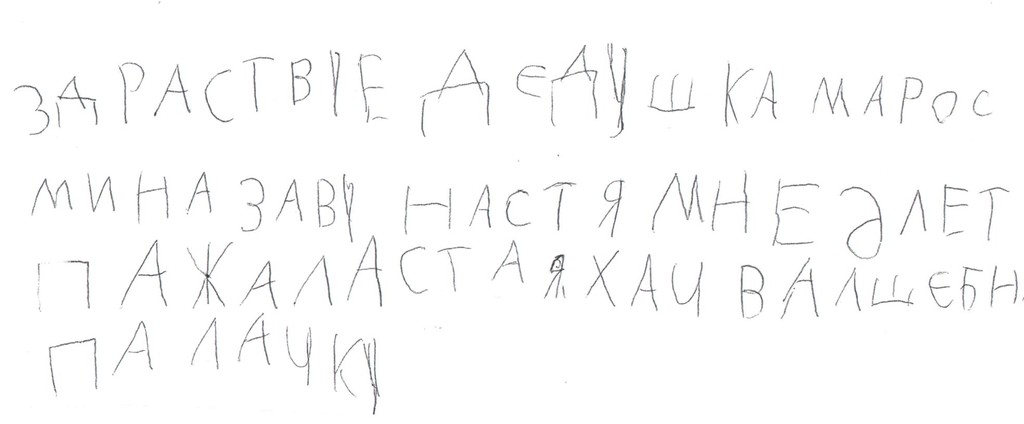 ЗДРАСТВУЕ ДЕДУШКА МАРОС
МИНА ЗАВУ НАСТЯ МНЕ 6 ЛЕТ
ПАЖАЛАСТА Я ХАЧУ ВАЛШЕБН
ПАЛАЧКУ